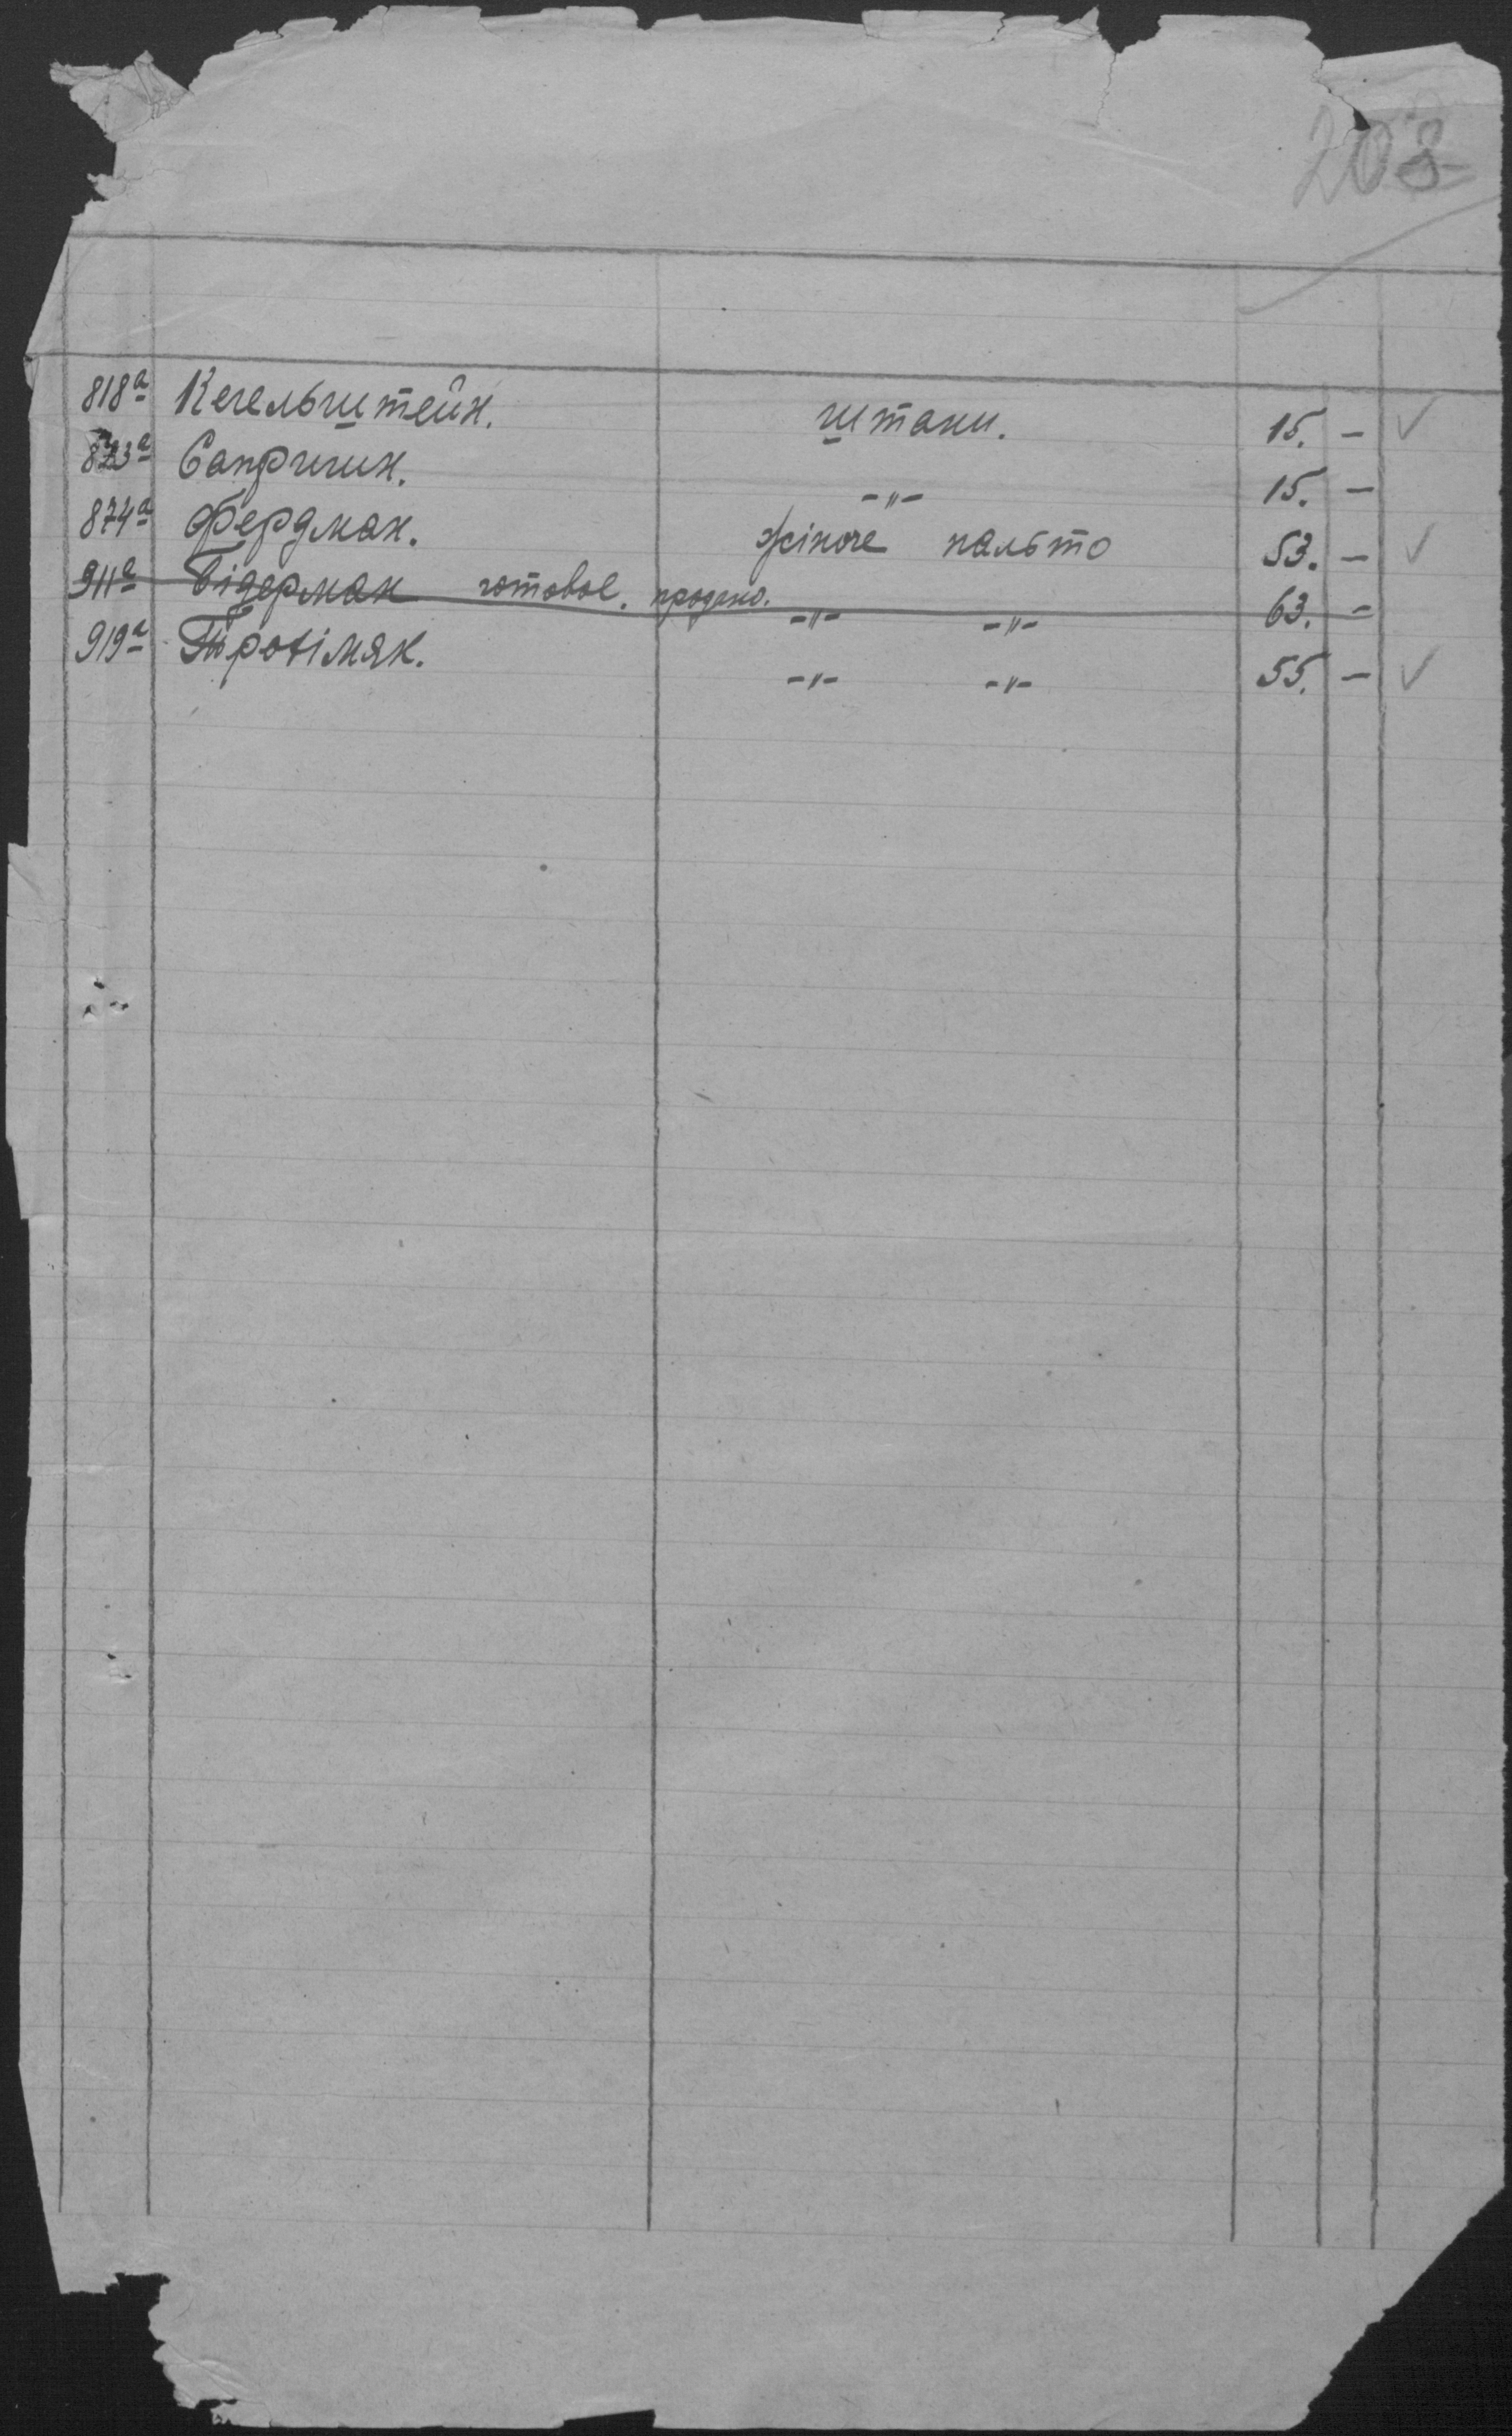 203
818а Кегельштейн. штани. 15. - ✓
823а Сапригин. -"- 15. -
874а Фердман. жіноче пальто 53. - ✓
911а Бідерман готовое. продано. -"- -"- 63. -
919а Трохімяк. -"- -"- 55. - ✓